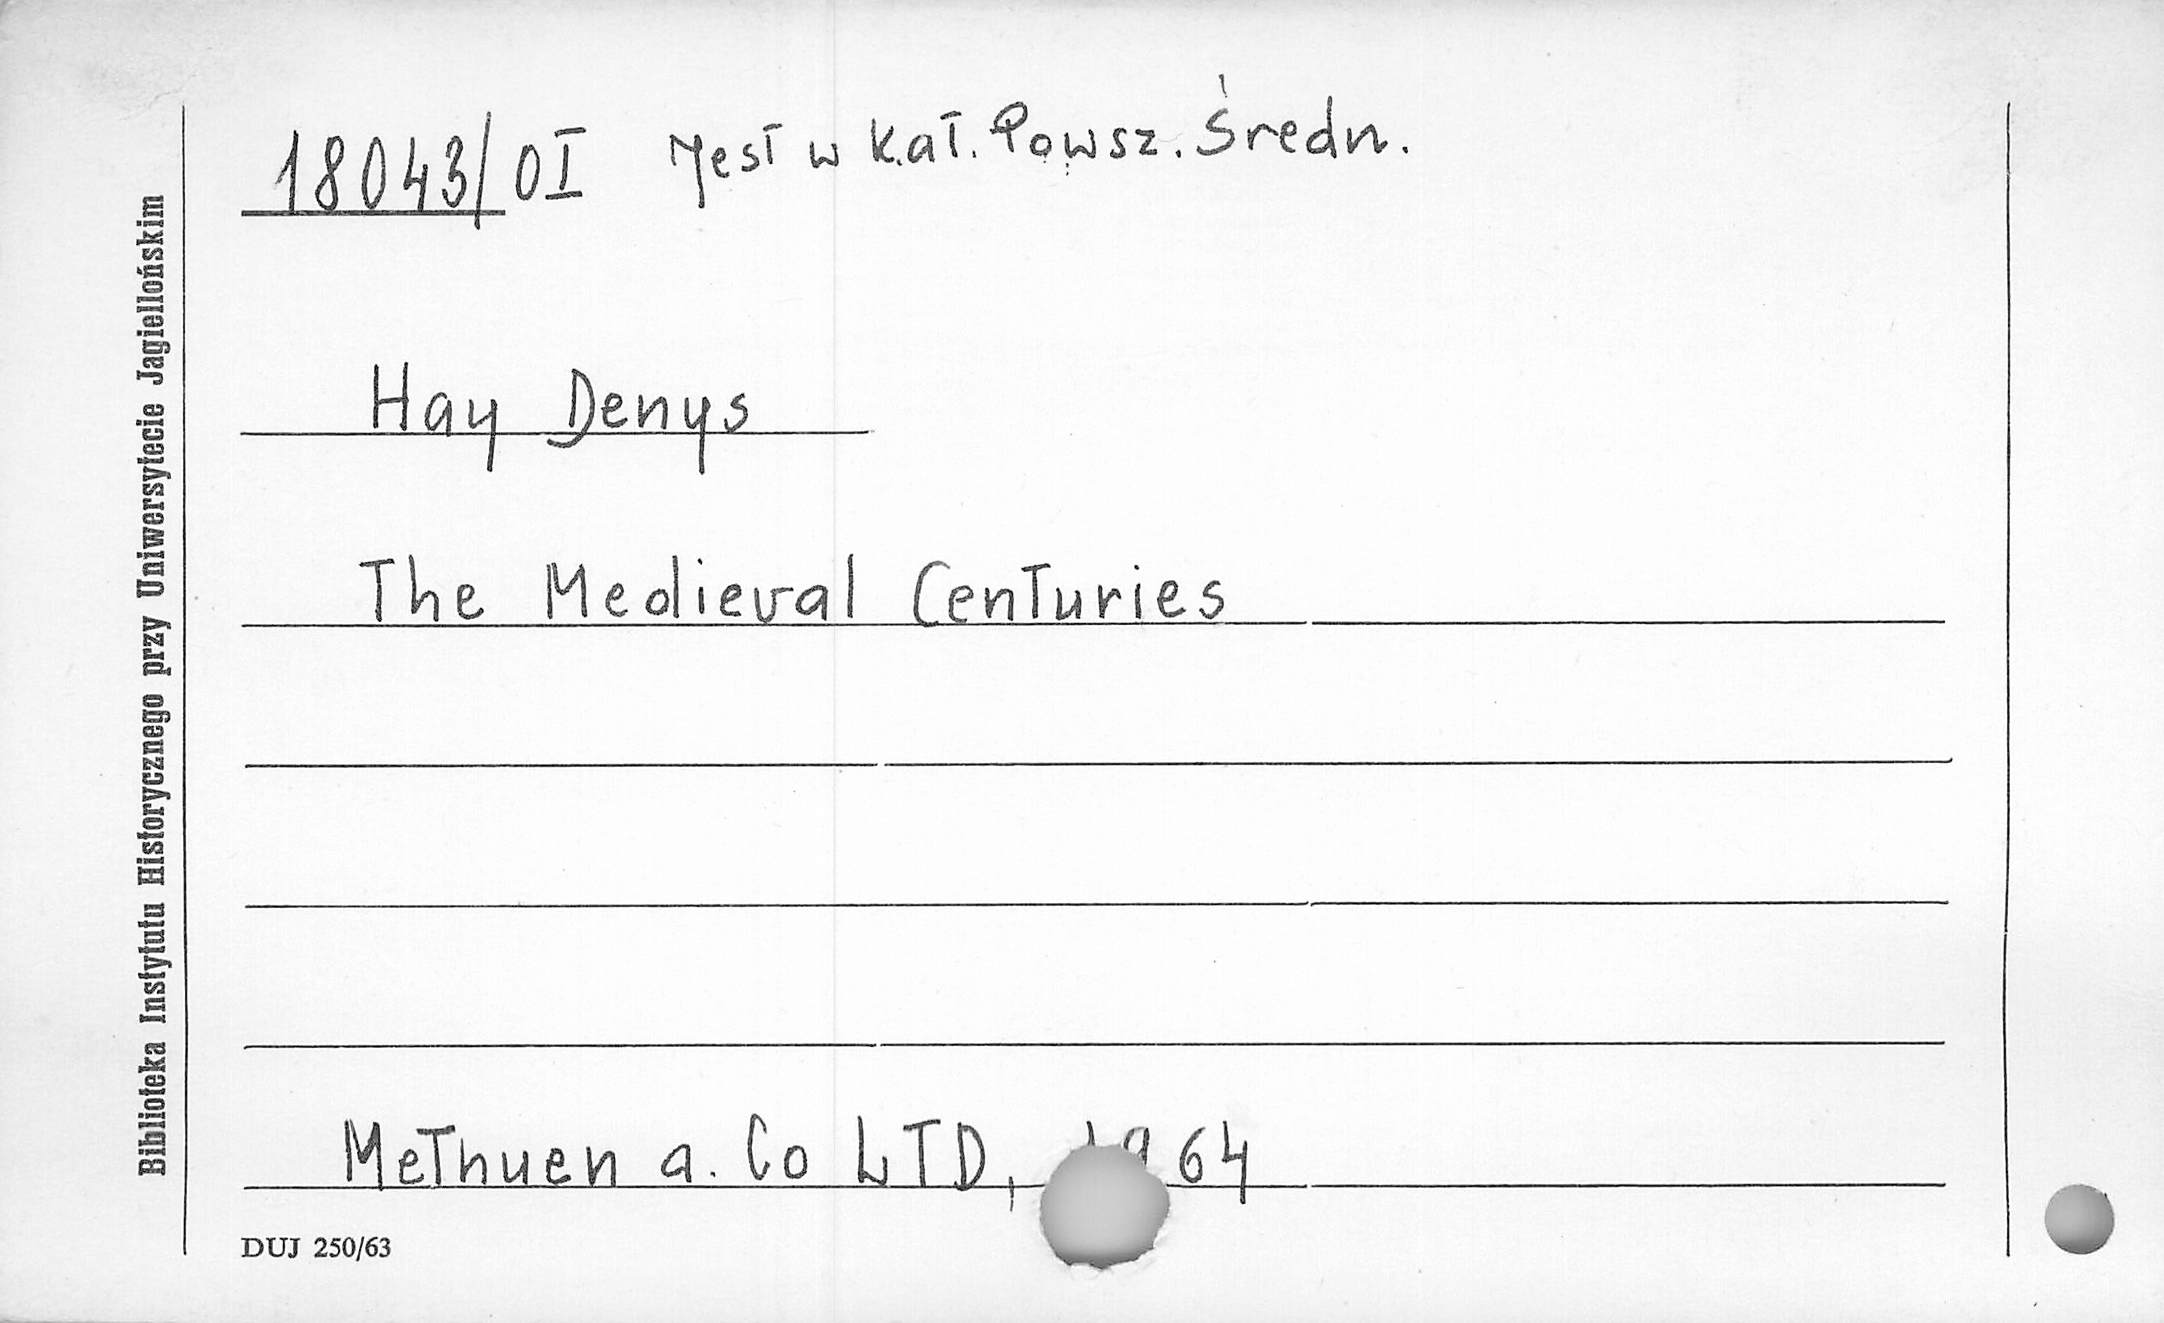 18043/OI Jest w Kat. Powsz. Średn.
Hay Denys
The Medieval Centuries
Methuen a. Co LTD, 1964
DUJ 250/63
Biblioteka Instytutu Historycznego przy Uniwersytecie Jagiellońskim